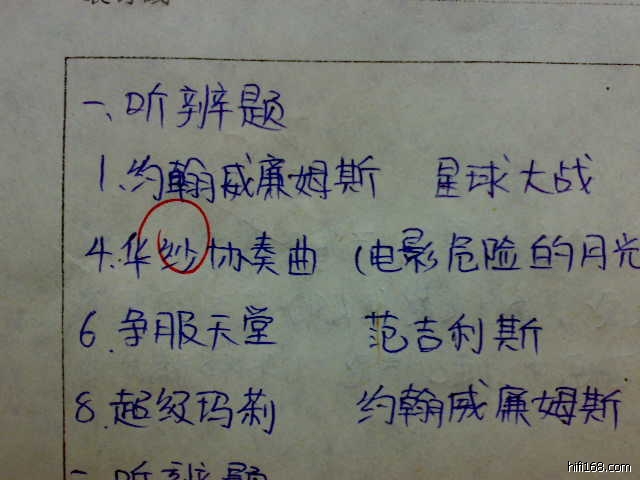 一、听辨题
1、约翰威廉姆斯 星球大战
4.华纱协奏曲 (电影危险的月光
6.争服天堂 范吉利斯
8.超级玛莉 约翰威廉姆斯
二 听辨题
hifi168.com